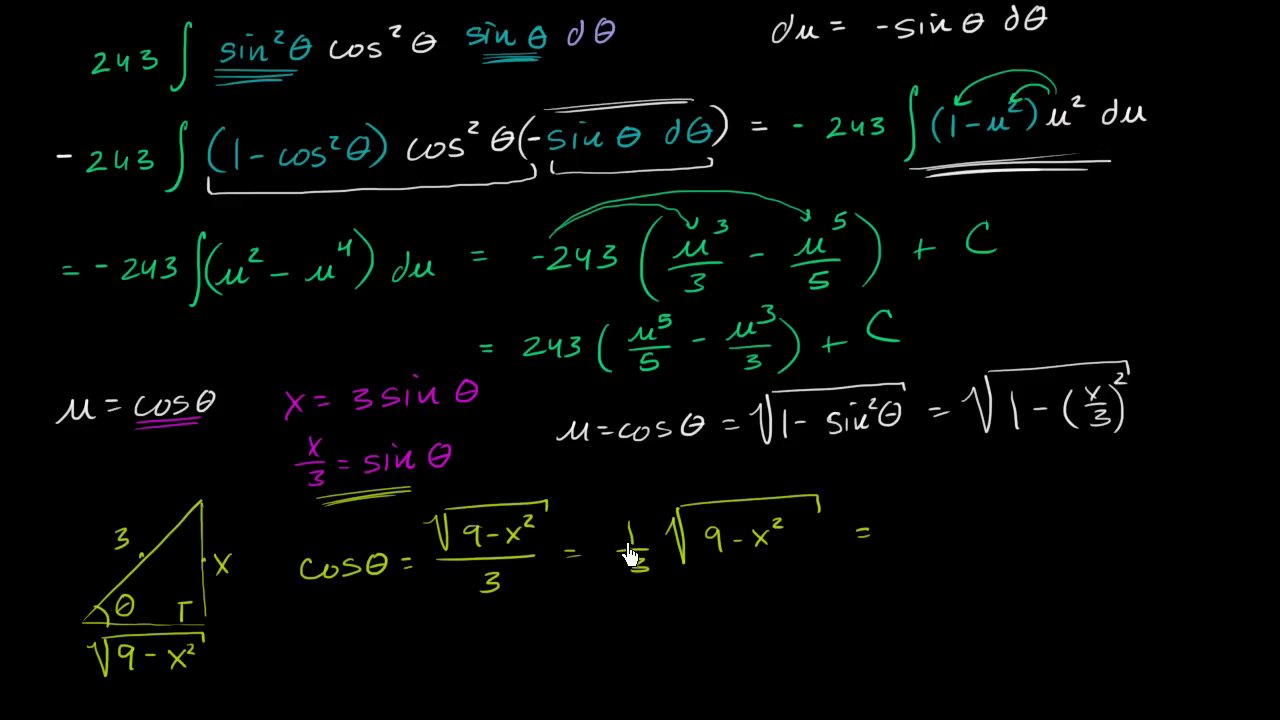 243 ∫ sin²θ cos²θ sin θ dθ
du = -sin θ dθ
- 243 ∫ (1 - cos²θ) cos²θ (-sin θ dθ) = - 243 ∫ (1 - u²) u² du
= - 243 ∫ (u² - u⁴) du = -243 (u³/3 - u⁵/5) + C
= 243 (u⁵/5 - u³/3) + C
u = cosθ
x = 3 sin θ
x/3 = sin θ
u = cos θ = √(1 - sin²θ) = √(1 - (x/3)²)
3
x
θ
√(9 - x²)
cosθ = √(9 - x²)/3 = 1/3 √(9 - x²) =